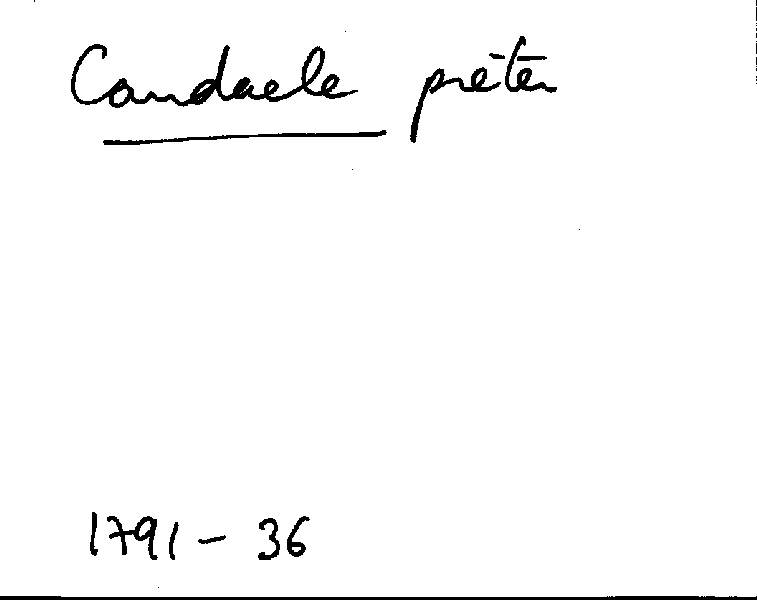 Candaele prêter
1791 - 36